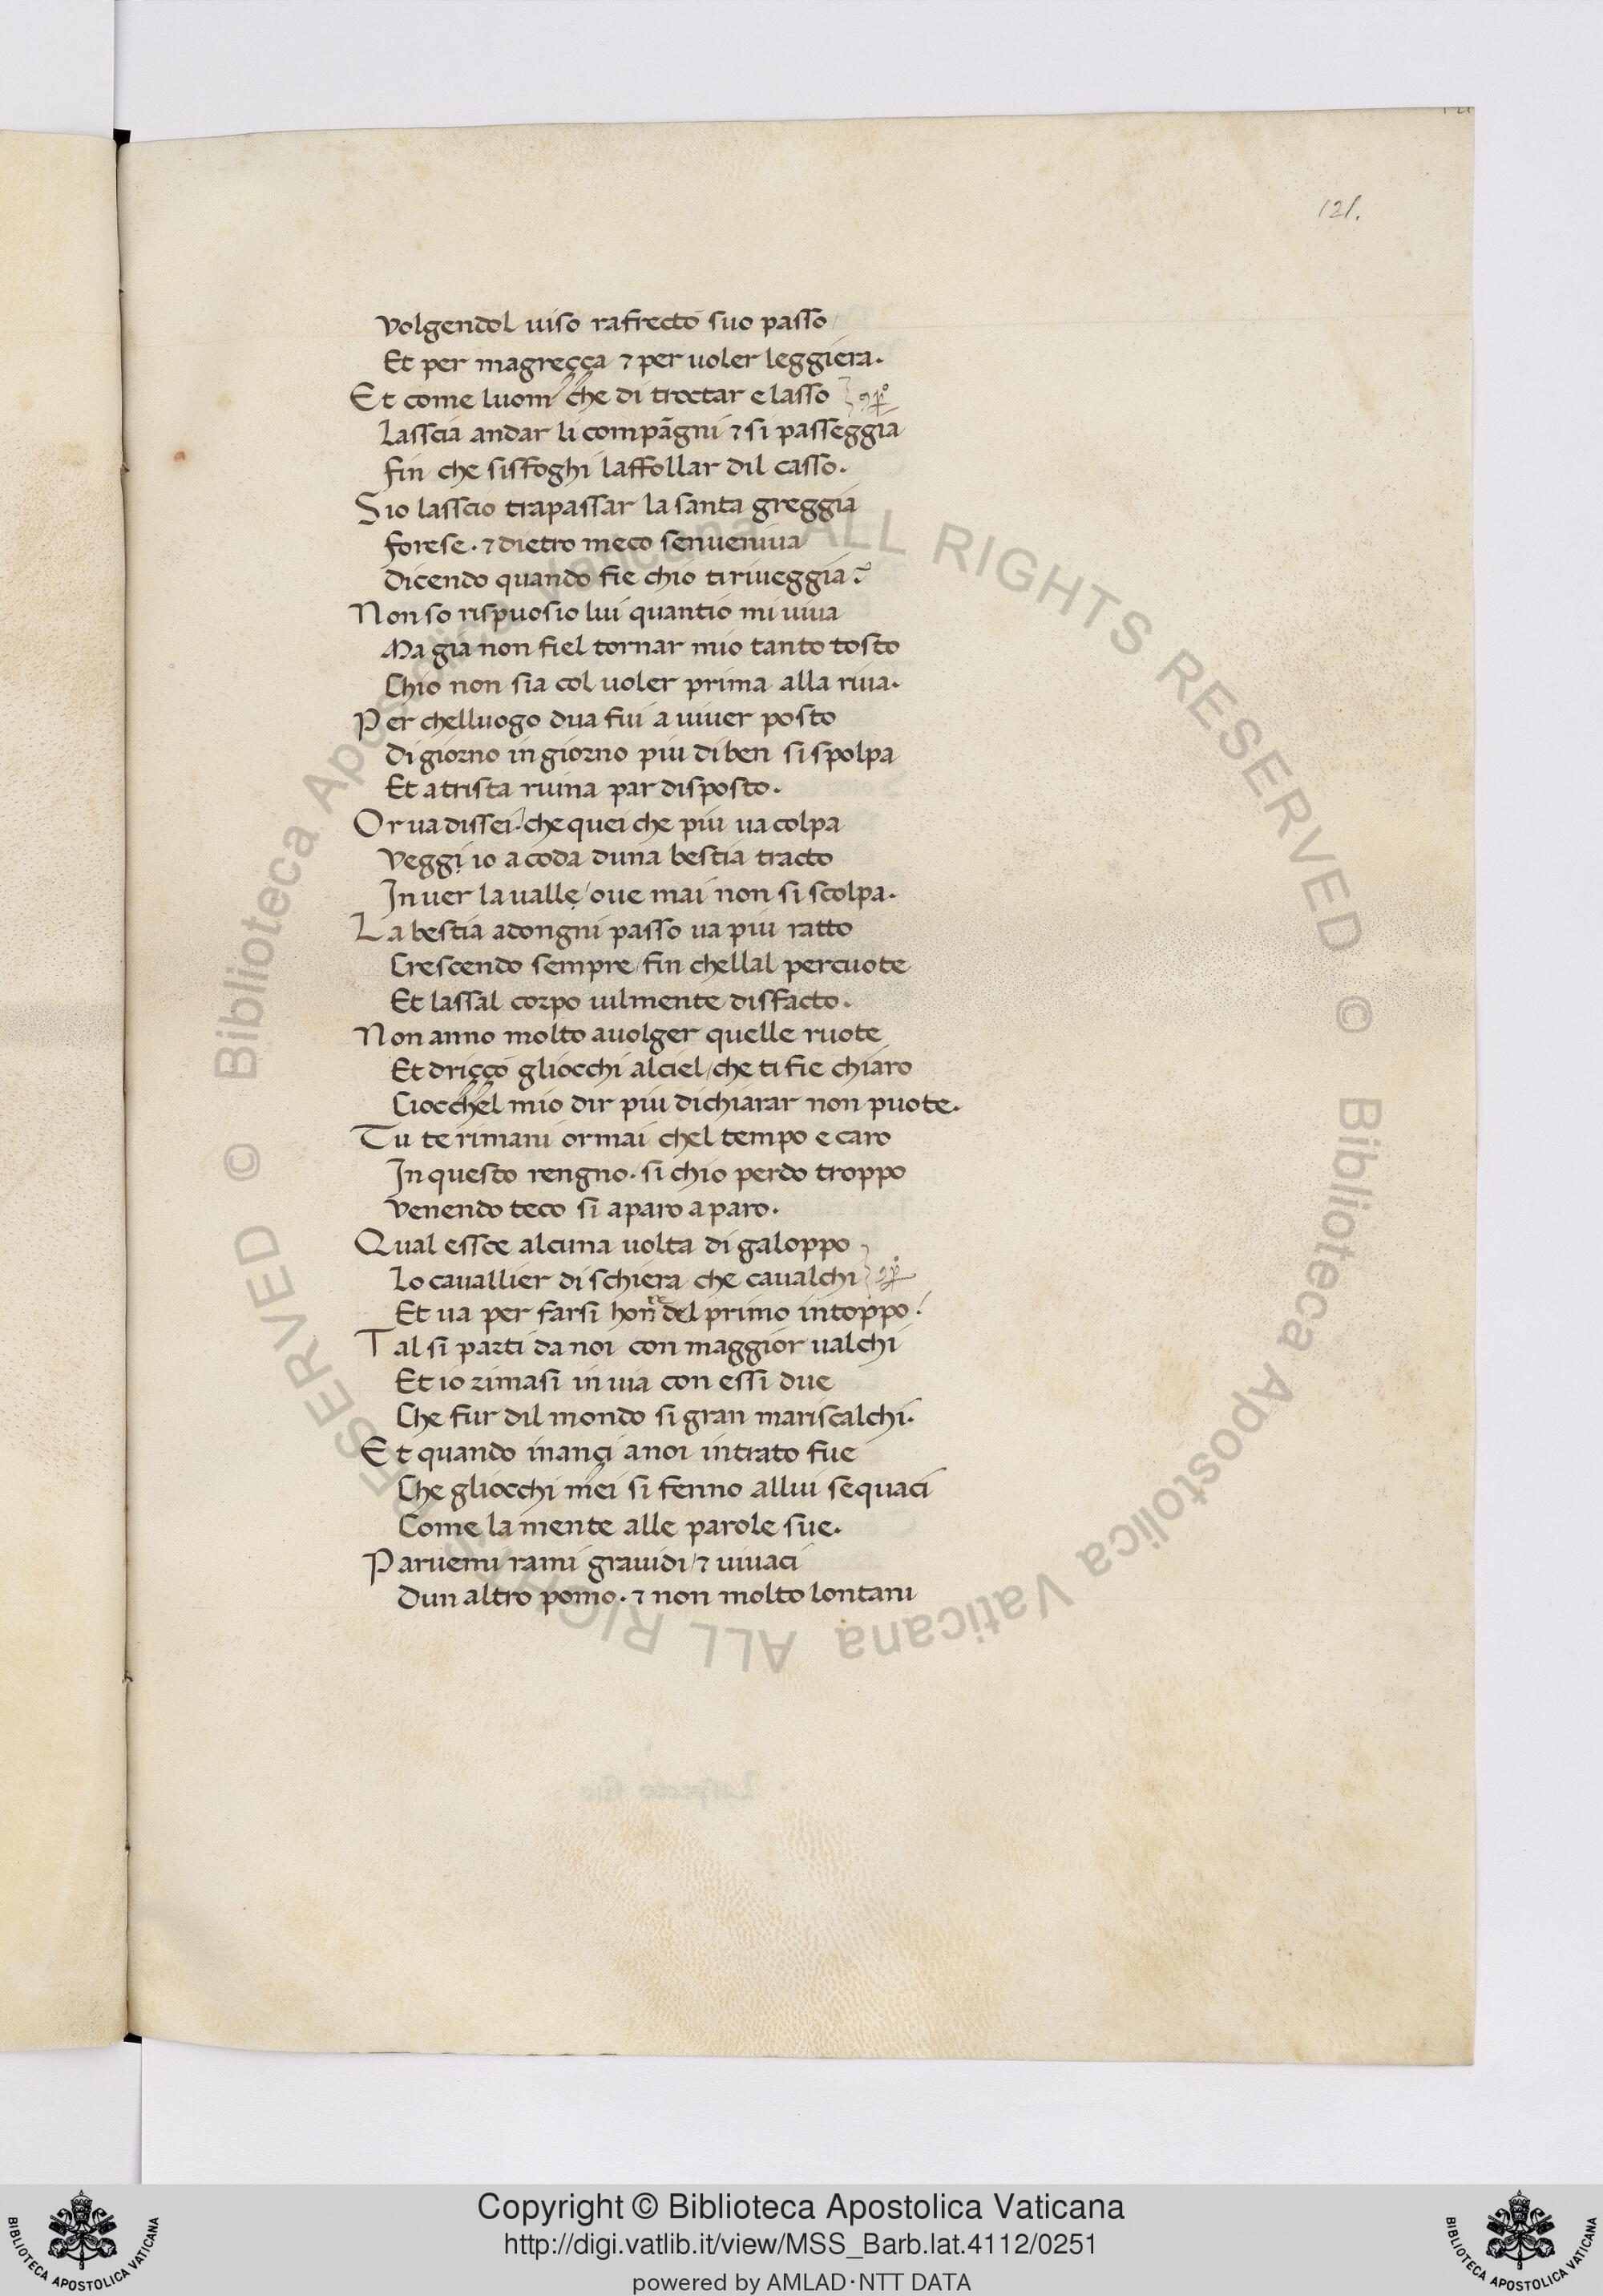 121.
Volgendol uiso rafrecto suo passo
Et per magreçça ⁊ per uoler leggiera.
Et come luom che di troctar e lasso
Lasscia andar li compāgni ⁊ si passeggia
fin che sisfoghi laffollar dil casso.
Sio lasscio trapassar la santa greggia
forese. ⁊ dietro meco senueniua
Dicendo quando fie chio tiriueggia?
Non so rispuosio lui quantio mi uiua
Ma gia non fiel tornar mio tanto tosto
Chio non sia col uoler prima alla riua.
Per chelluogo dua fui a uiuer posto
Di giorno in giorno piu di ben si spolpa
Et a trista ruina par disposto.
Or ua dissei. che quei che piu ua colpa
Veggi io a coda duna bestia tracto
In uer la ualle/ oue mai non si scolpa.
La bestia adongni passo ua piu ratto
Crescendo sempre/ fin chellal percuote
Et lassal corpo uilmente disfacto.
Non anno molto auolger quelle ruote
Et driçço gliocchi alciel/ che ti fie chiaro
Ciocchel mio dir piu dichiarar non puote.
Tu te rimani ormai chel tempo e caro
In questo rengno. si chio perdo troppo
Venendo teco si aparo a paro.
Qual essce alcuna uolta di galoppo
Lo cauallier di schiera che caualchi
Et ua per farsi hoñre del primo intoppo.
Tal si parti da noi con maggior ualchi
Et io rimasi in uia con essi due
Che fur dil mondo si gran mariscalchi.
Et quando inançi anoi intrato fue
Che gliocchi mei si fenno allui sequaci
Come la mente alle parole sue.
Paruemi rami grauidi/ ⁊ uiuaci
Dun altro pomo. ⁊ non molto lontani
© Biblioteca Apostolica Vaticana ALL RIGHTS RESERVED © Biblioteca Apostolica Vaticana ALL RIGHTS RESERVED
Copyright © Biblioteca Apostolica Vaticana
http://digi.vatlib.it/view/MSS_Barb.lat.4112/0251
powered by AMLAD·NTT DATA
BIBLIOTECA APOSTOLICA VATICANA
BIBLIOTECA APOSTOLICA VATICANA